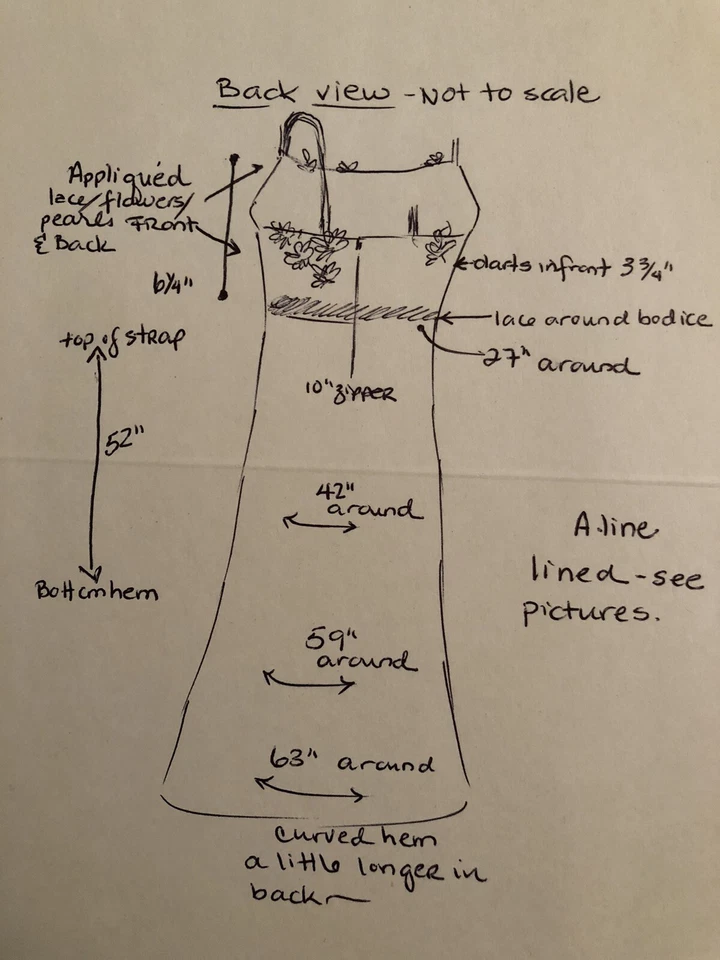 Back view - Not to scale
Appliquéd
lace/flowers/
pearls Front
& Back
6¼"
darts in front 3¾"
lace around bodice
27" around
top of strap
52"
Bottom hem
10" zipper
42"
around
A-line
lined - see
pictures.
59"
around
63" around
curved hem
a little longer in
back